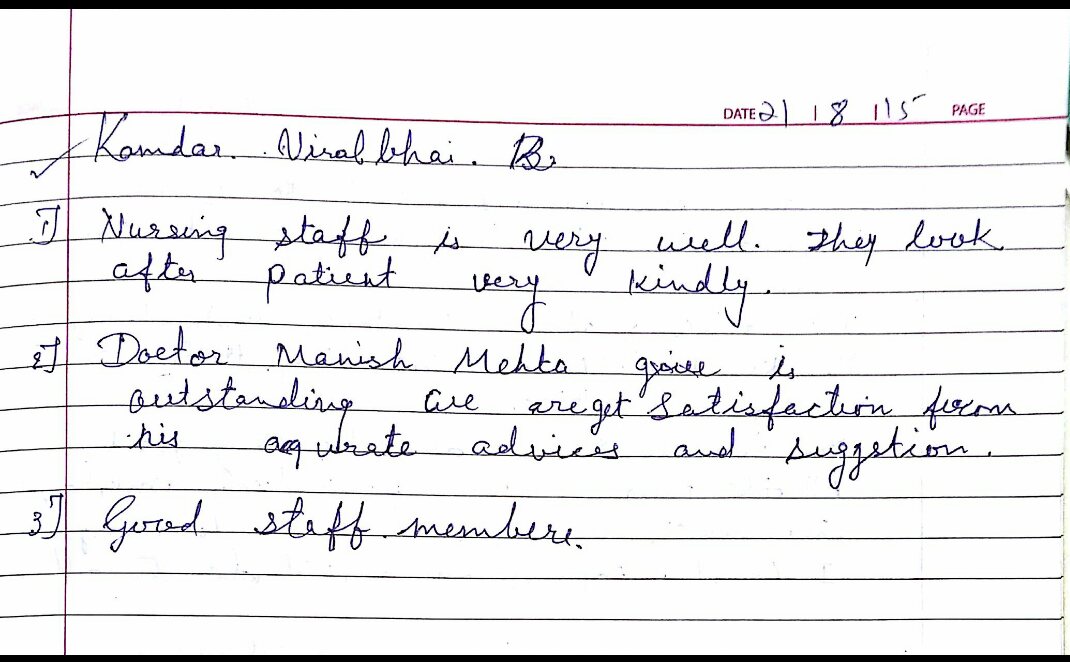 DATE 21 8 15 PAGE
Kamdar. Viralbhai. B.
1] Nursing staff is very well. They look
after patient very kindly.
2] Doctor Manish Mehta is
outstanding are get satisfaction from
his aqurate advices and suggstion.
3] Good staff members.